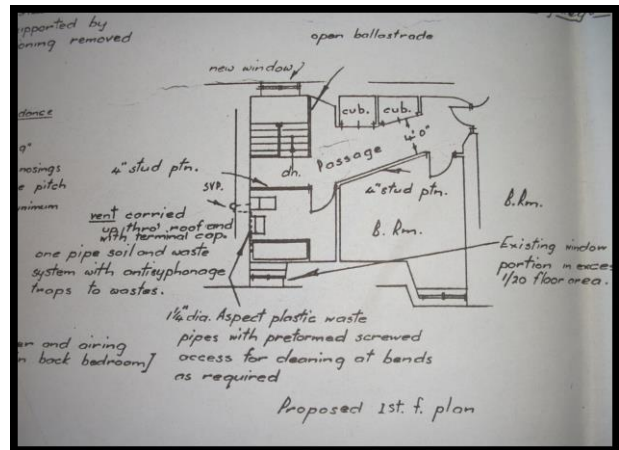 upported by
oning removed
open ballastrade
new window
cub.
cub.
4'0"
Passage
dn.
4" stud ptn.
4" stud ptn.
nosings
e pitch
SVP.
B. Rm.
B. Rm.
vent carried
up thro' roof and
with terminal cap.
one pipe soil and waste
system with antisyphonage
traps to wastes.
Existing window
portion in exces
1/20 floor area.
1¼" dia. Aspect plastic waste
pipes with preformed screwed
access for cleaning at bends
as required
er and airing
n back bedroom]
Proposed 1st. f. plan